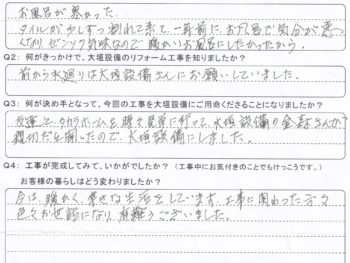 お風呂が寒かった。
タイルが少しずつ割れて来て、一年前に、お風呂で気分が悪く
なりゼンソク気味なので暖かいお風呂にしたかったから。
Q2：何がきっかけで、大垣設備のリフォーム工事を知りましたか？
前から水廻りは大垣設備さんにお願いしていました。
Q3：何が決め手となって、今回の工事を大垣設備にご用命くださることになりましたか？
友達と、タカラホームを見に行って、大垣設備の金森さんが
親切だと聞いたので、大垣設備にしました。
Q4：工事が完成してみて、いかがでしたか？（工事中にお気付きのことでもけっこうです。）
お客様の暮らしはどう変わりましたか？
今は、暖かく、幸せな生活をしています。工事に関わった方々
色々お世話になり有難うございました。